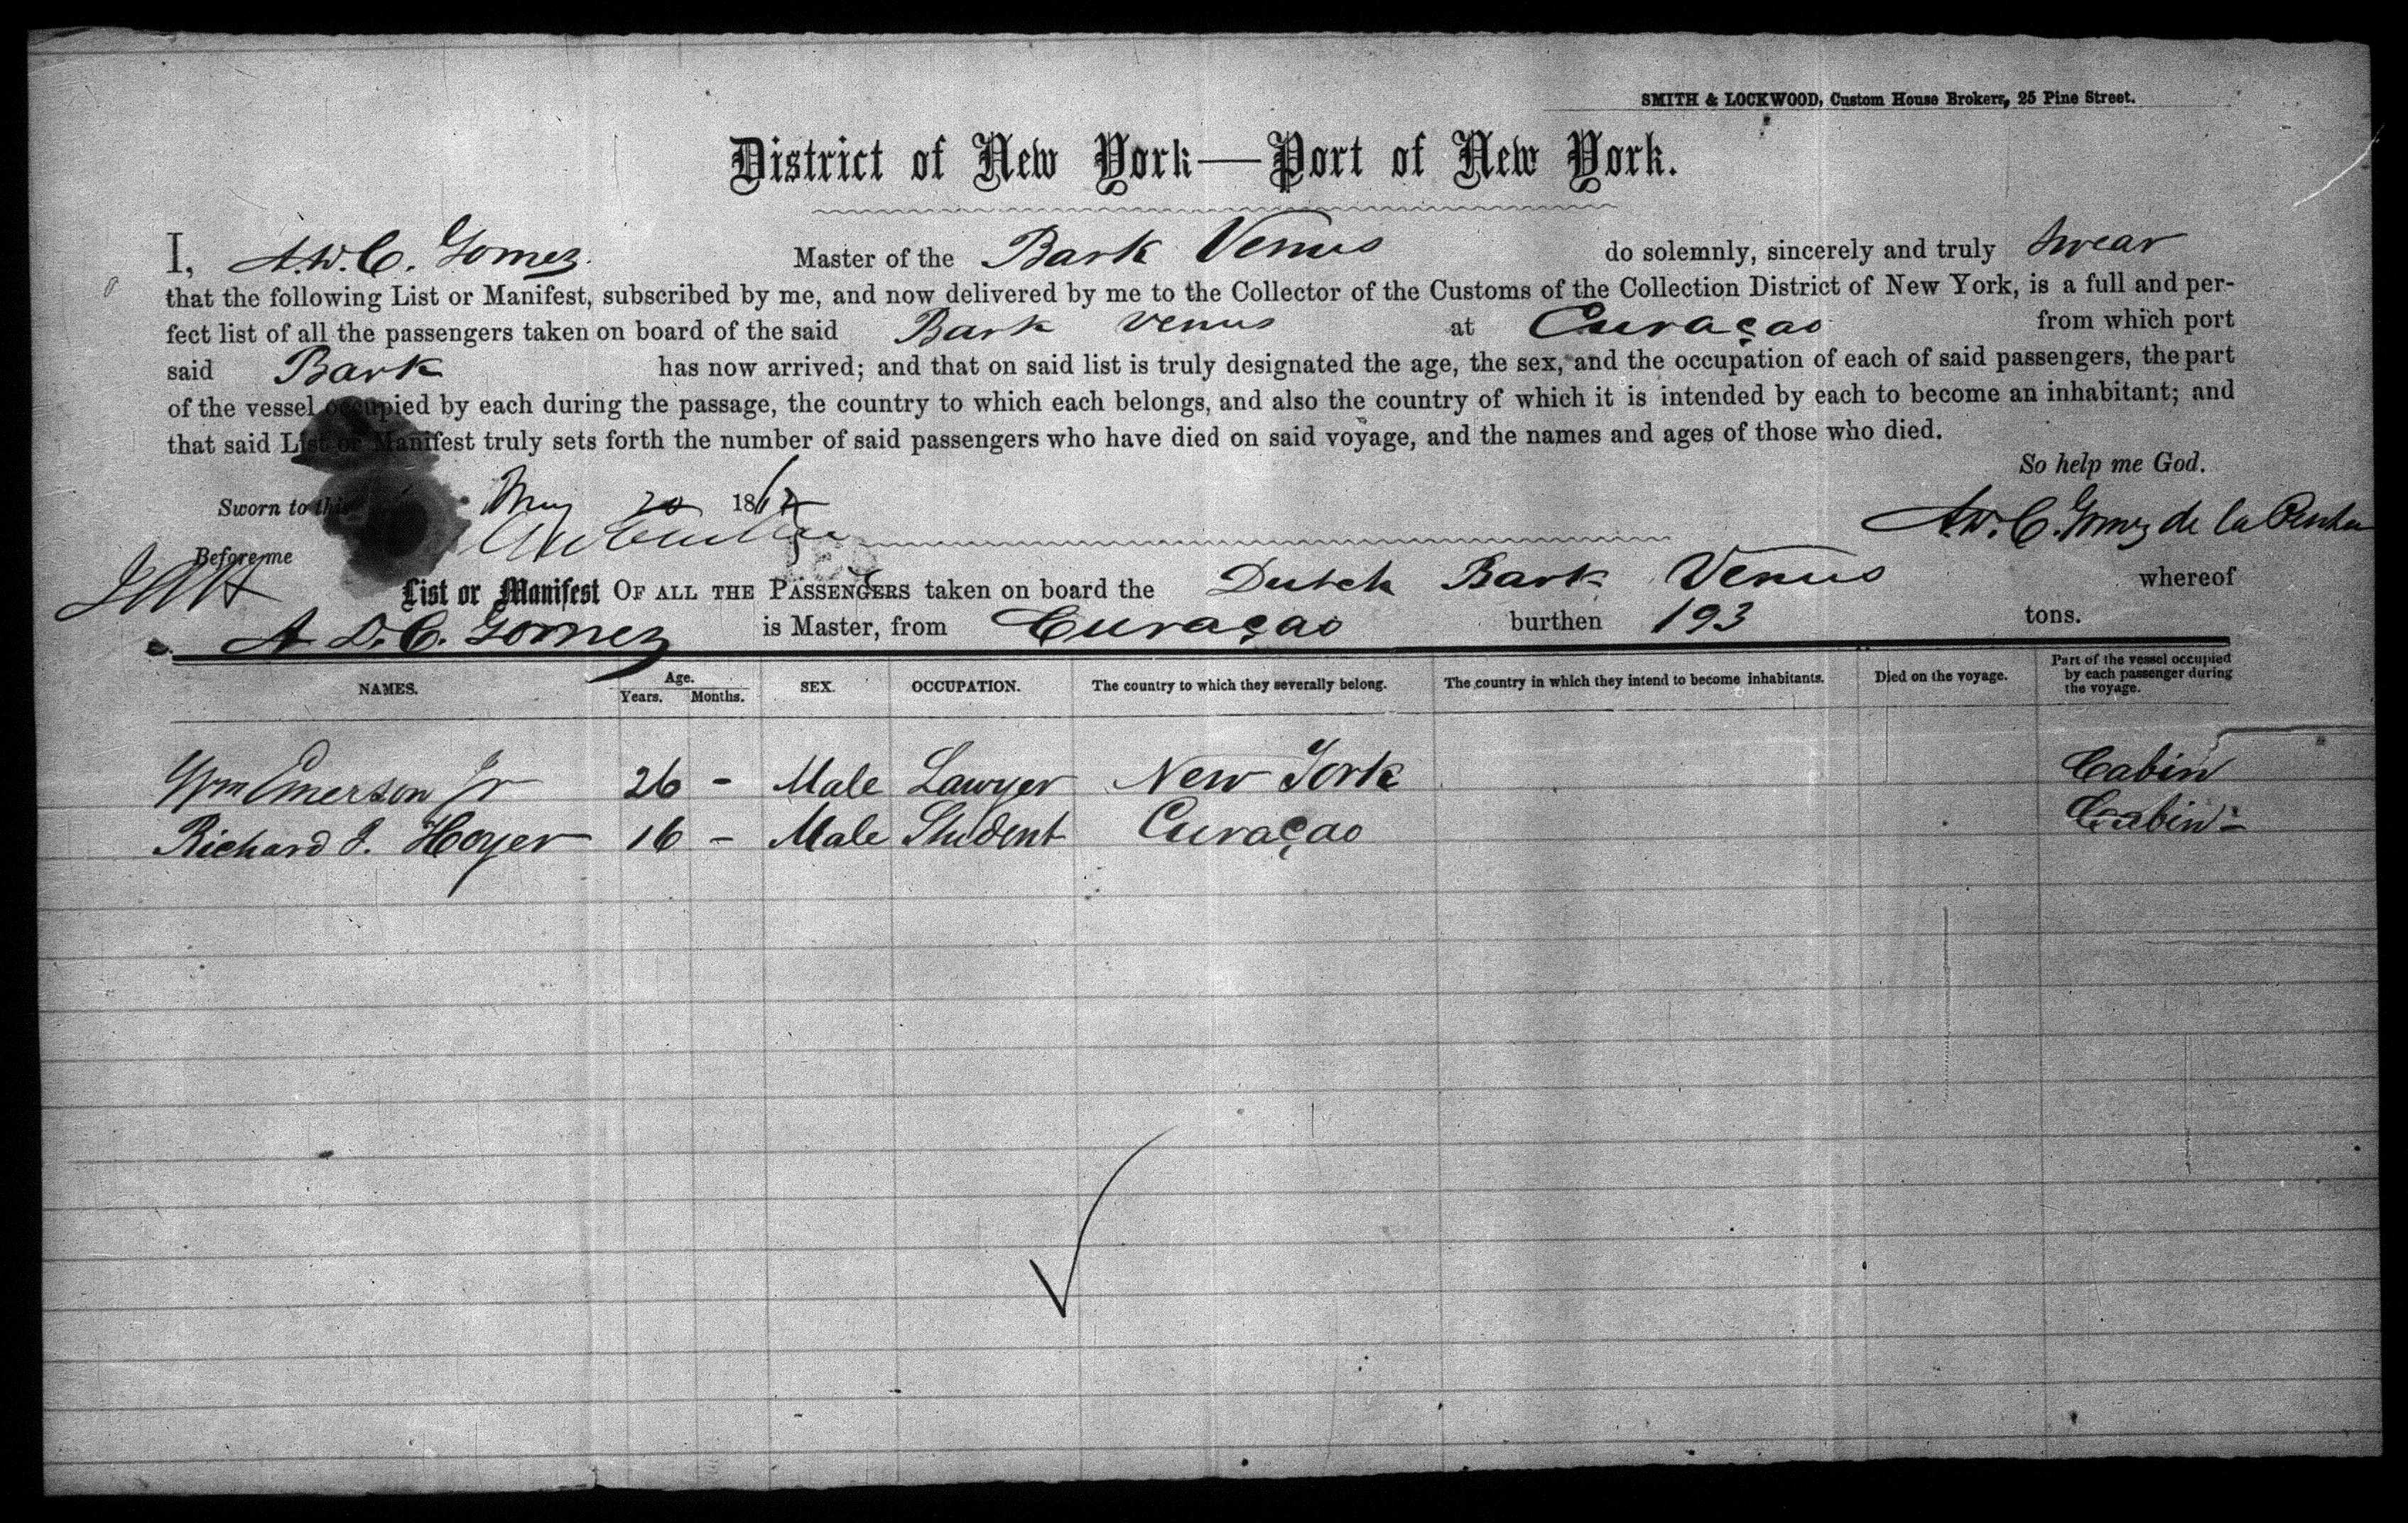 SMITH & LOCKWOOD, Custom House Brokers, 25 Pine Street.
District of New York—Port of New York.
I, A.W.C. Gomez. Master of the Bark Venus do solemnly, sincerely and truly swear
that the following List or Manifest, subscribed by me, and now delivered by me to the Collector of the Customs of the Collection District of New York, is a full and per-
fect list of all the passengers taken on board of the said Bark Venus at Curaçao from which port
said Bark has now arrived; and that on said list is truly designated the age, the sex, and the occupation of each of said passengers, the part
of the vessel occupied by each during the passage, the country to which each belongs, and also the country of which it is intended by each to become an inhabitant; and
that said List or Manifest truly sets forth the number of said passengers who have died on said voyage, and the names and ages of those who died.
So help me God.
Sworn to this May 20 1862
A.W.C. Gomez de la Penha
Before me
List or Manifest OF ALL THE PASSENGERS taken on board the Dutch Bark Venus whereof
A D.C. Gomez is Master, from Curaçao burthen 193 tons.
NAMES. Age. Years. Months. SEX. OCCUPATION. The country to which they severally belong. The country in which they intend to become inhabitants. Died on the voyage. Part of the vessel occupied by each passenger during the voyage.
Wm Emerson Jr 26 - Male Lawyer New York Cabin
Richard J. Hoyer 16 - Male Student Curaçao Cabin-